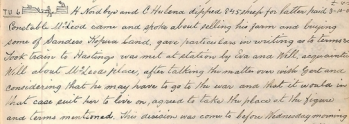 Tu 6 A Nordbye and C Hulena dipped 845 sheep for latter, paid
Constable McLeod came and spoke about selling his farm and buying
some of Sanders Kopua land, gave particulars in writing as to terms &c
Took train to Hastings was met at station by Eva and Will, acquainted
Will about McLeods place, after talking the matter over with Gert and
considering that he may have to go to the war and that it would in
that case suit her to live on, agreed to take the place at the figure
and terms mentioned. This decision was come to before Wednesday morning